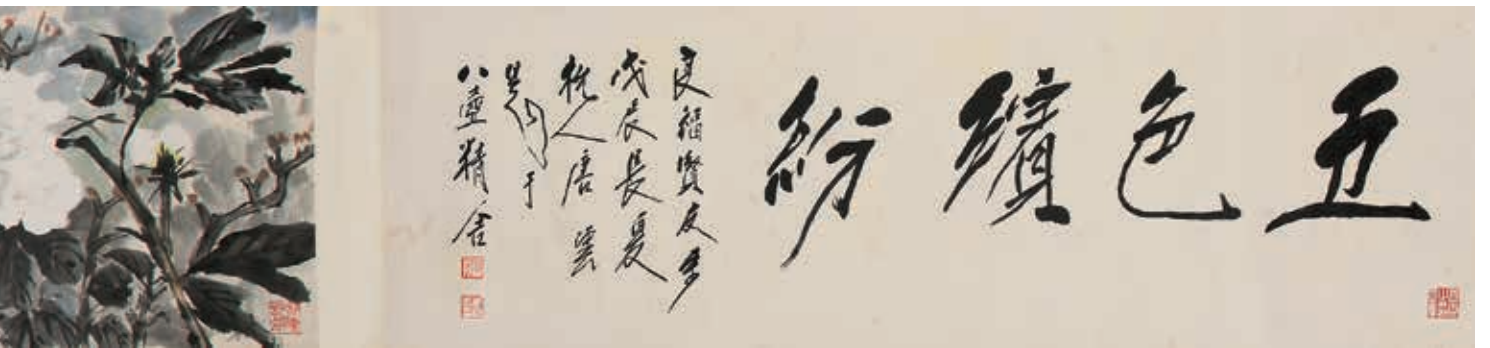 五色繽紛
良福賢友
戊辰長夏
杭人唐雲
題于
八壺精舍